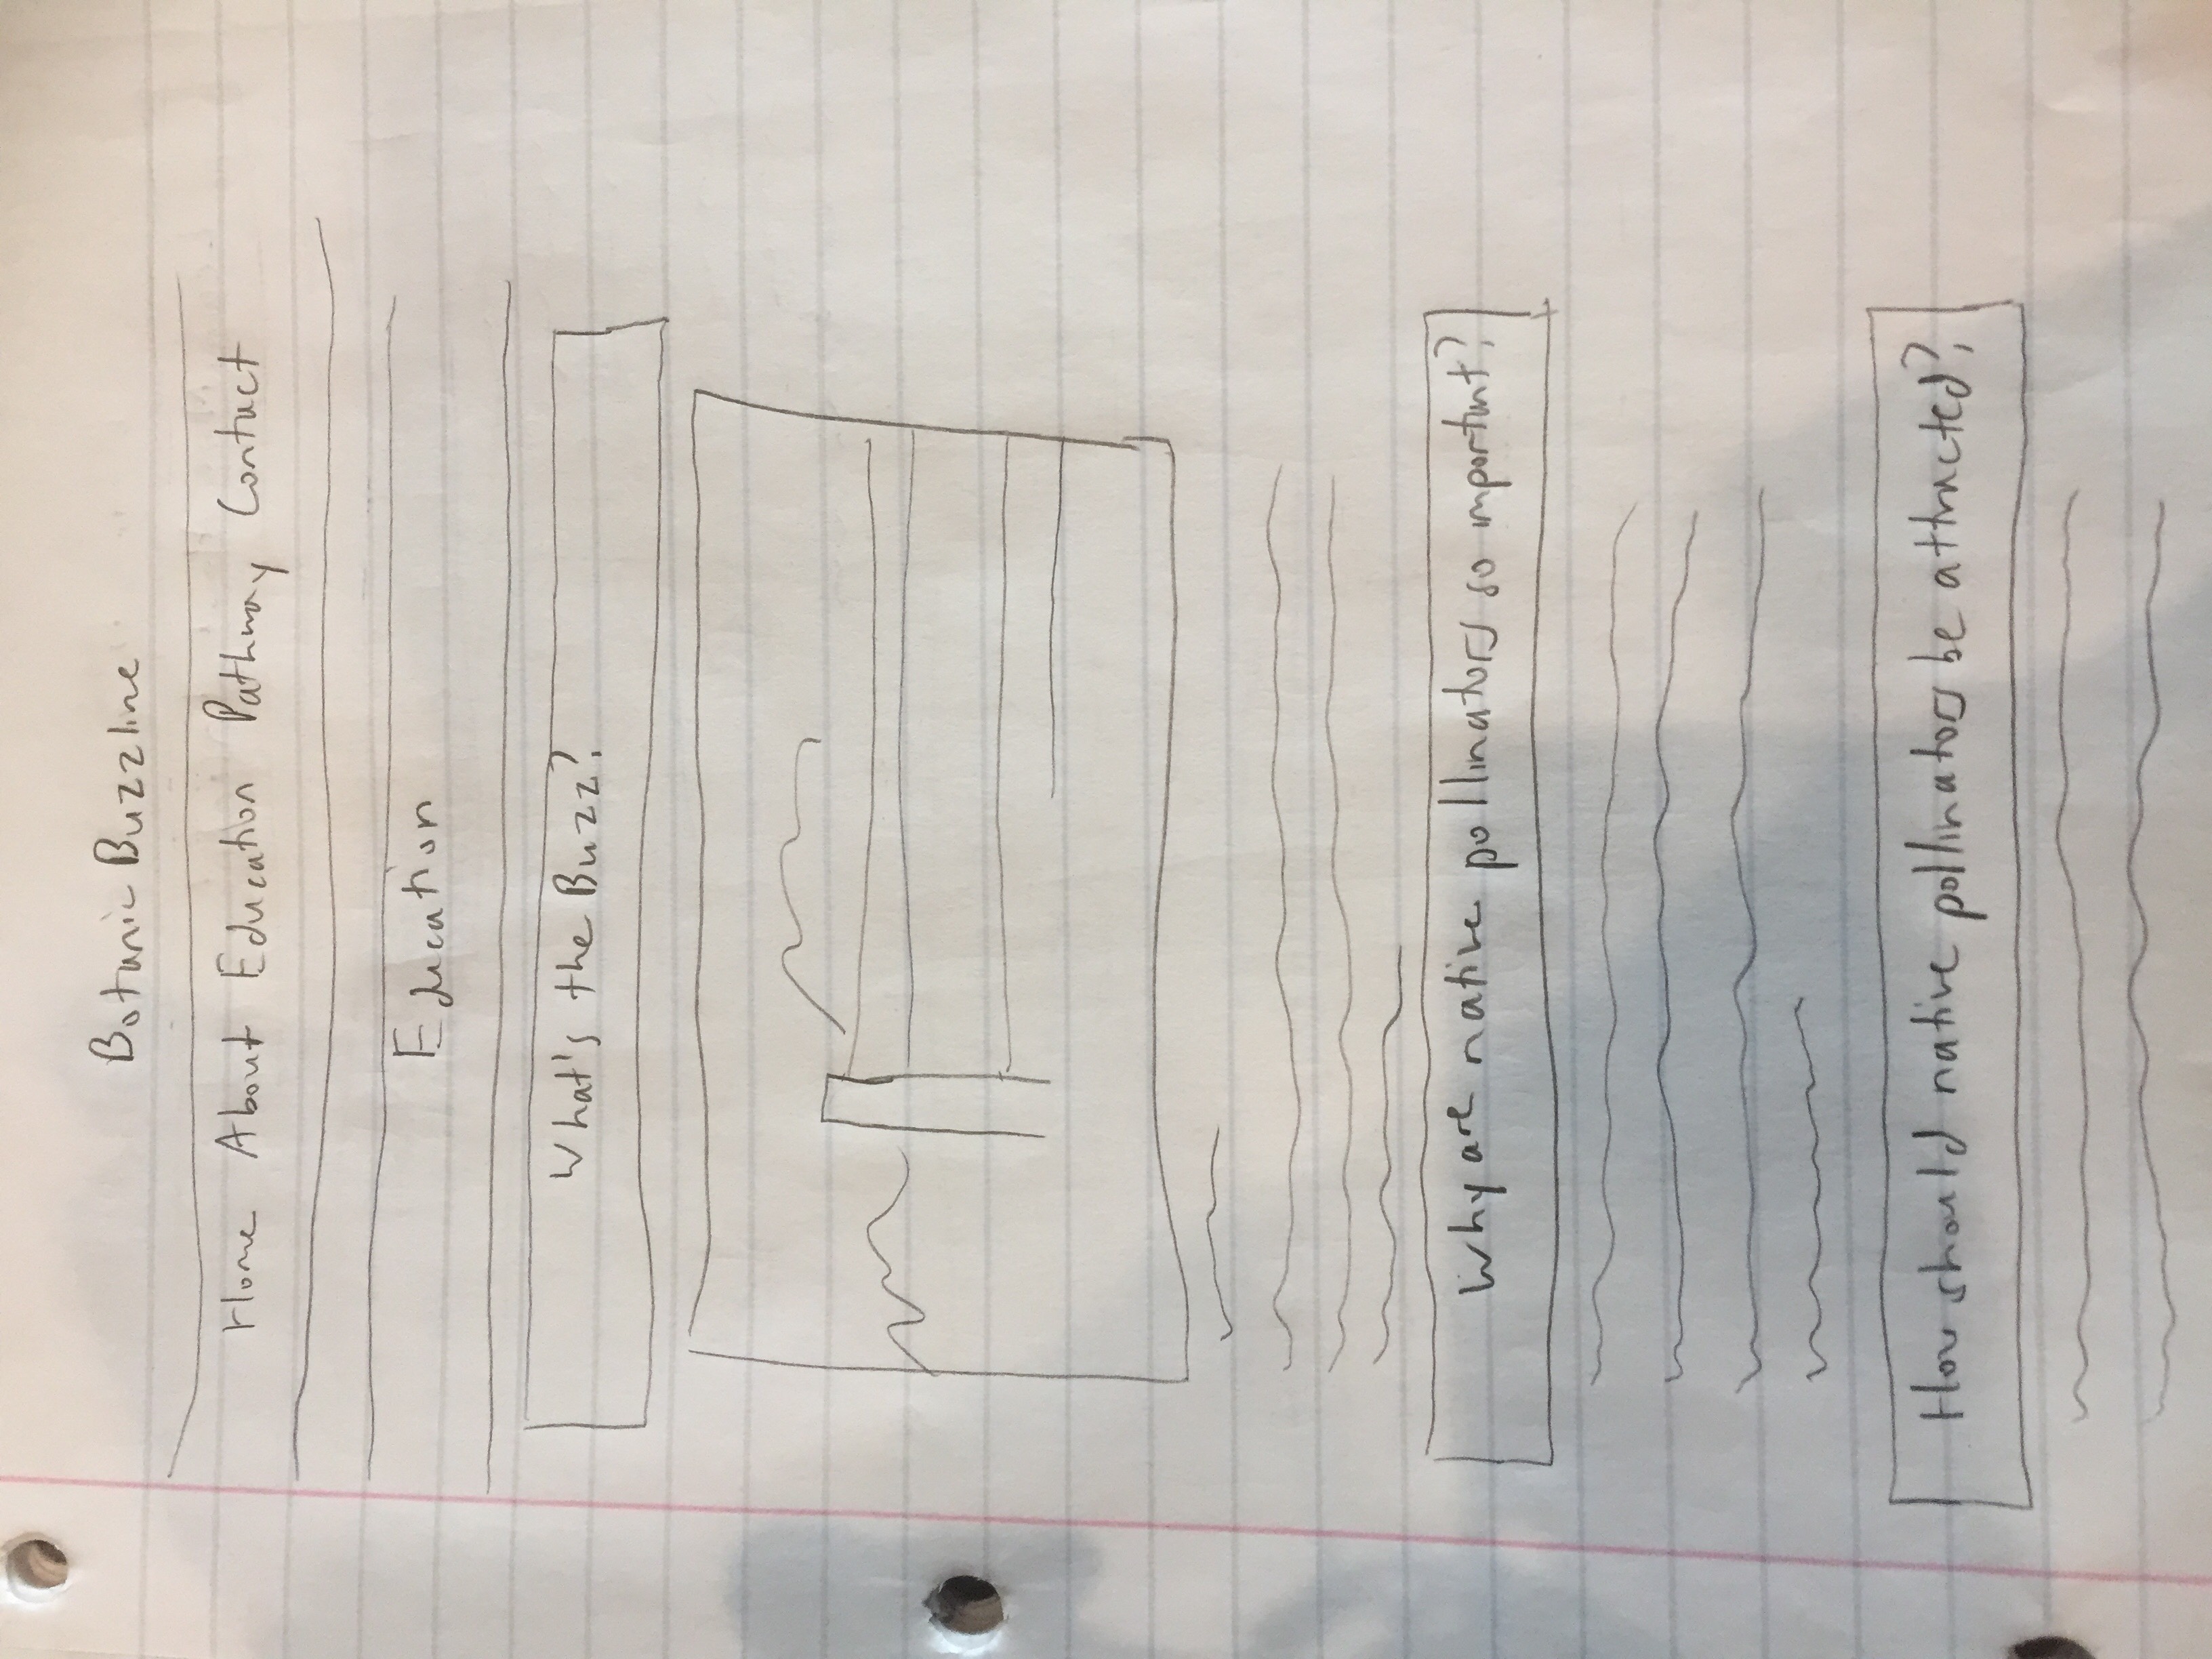 Botanic Buzzline
Home About Education Pathway Contact
Education
What's the Buzz?
Why are native pollinators so important?
How should native pollinators be attracted?